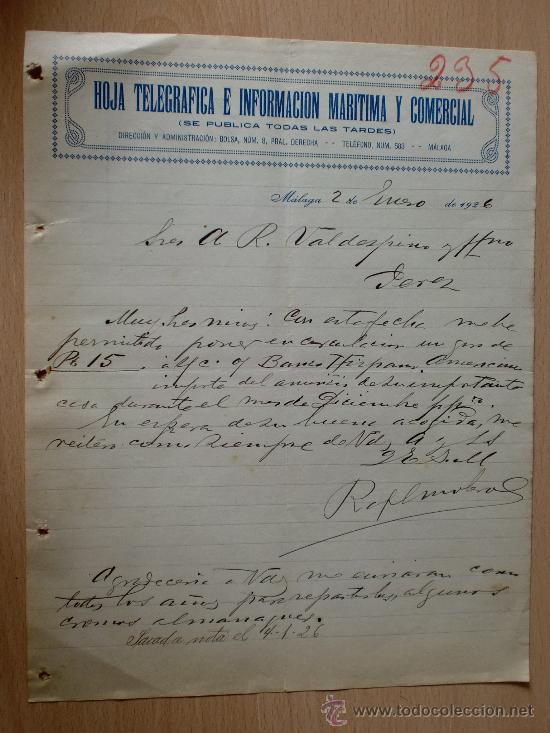 235
HOJA TELEGRAFICA E INFORMACION MARITIMA Y COMERCIAL
(SE PUBLICA TODAS LAS TARDES)
DIRECCIÓN Y ADMINISTRACIÓN: BOLSA, NÚM. 8, PRAL. DERECHA -- TELÉFONO, NÚM. 583 -- MÁLAGA
Málaga 2 de Enero de 1926
Sres A. R. Valdespino y Hno
Jerez
Muy Sres mios: Con esta fecha me he
permitido poner en circulacion un giro de
Pts 15 a/c. o/ Banco Hispano Americano
importe del anuncio de su importante
casa durante el mes de Diciembre ppdo
En espera de su buena acogida, me
reitero como siempre de Vds a. y ss
q e s m
Agradeceria a Vds me enviaran como
todos los años para repartirlos, algunos
cromos almanaques.
Sacada nota el 4-1-26
todocoleccion
www.todocoleccion.net